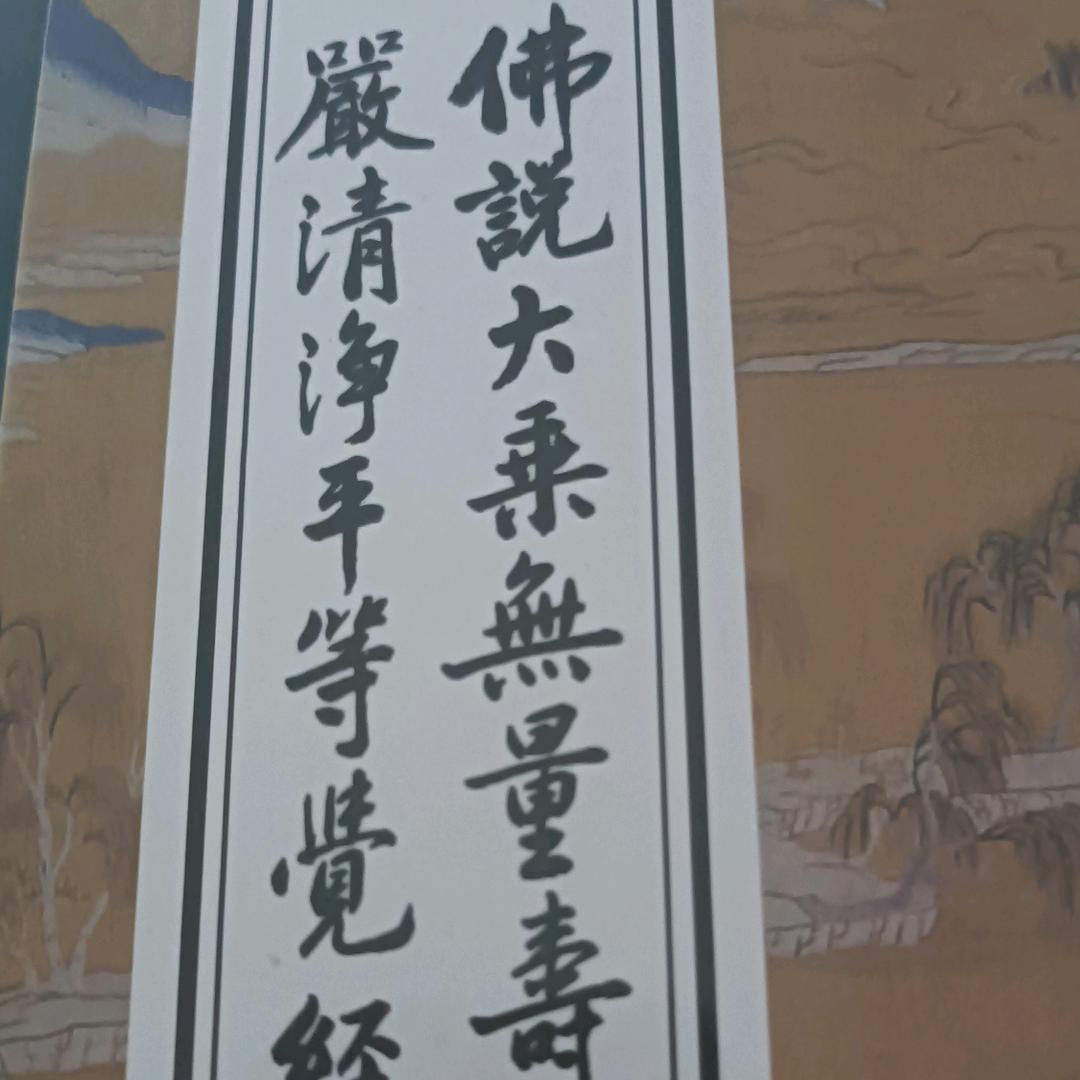 佛説大乗無量壽
嚴清淨平等覺經